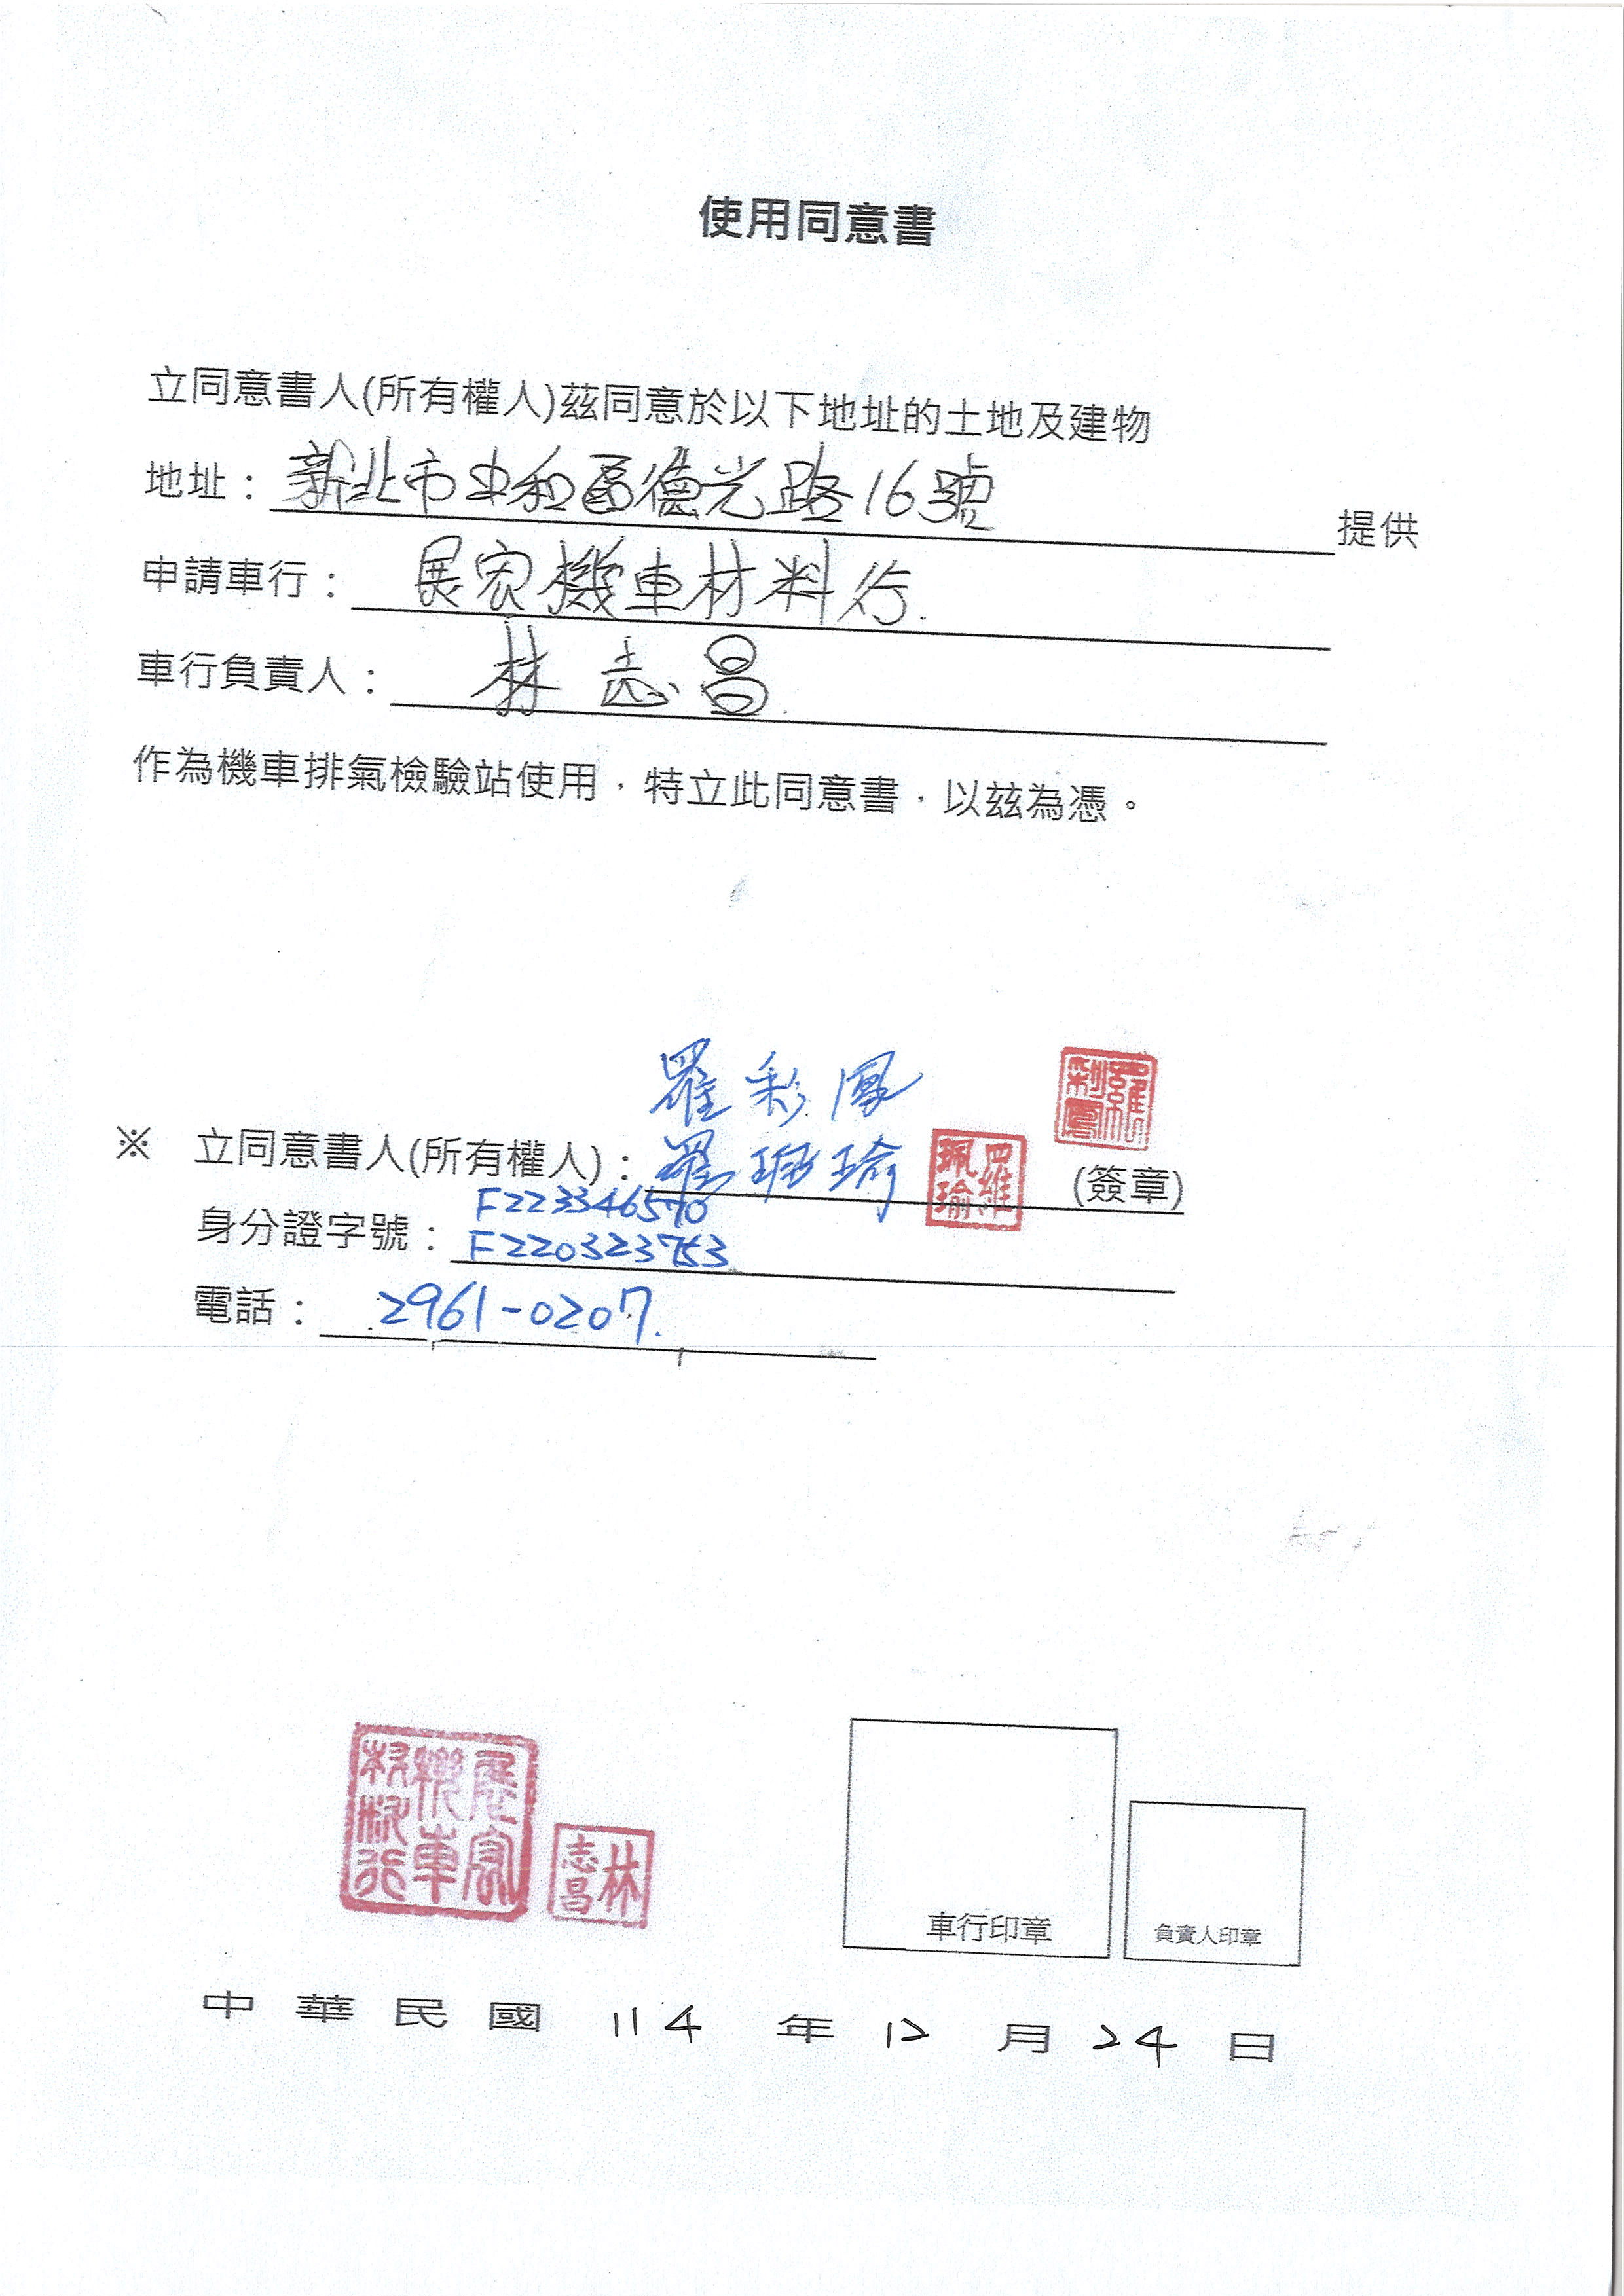 使用同意書
立同意書人(所有權人)茲同意於以下地址的土地及建物
地址：新北市中和區德光路16號提供
申請車行：展宏機車材料行.
車行負責人：林志昌
作為機車排氣檢驗站使用，特立此同意書，以茲為憑。
羅彩鳳
※ 立同意書人(所有權人)：羅珮瑜 (簽章)
羅彩鳳
羅珮瑜
F223346570
身分證字號：F220323753
電話：2961-0207.
展宏機車材料行
林志昌
車行印章
負責人印章
中華民國 114 年 12 月 24 日